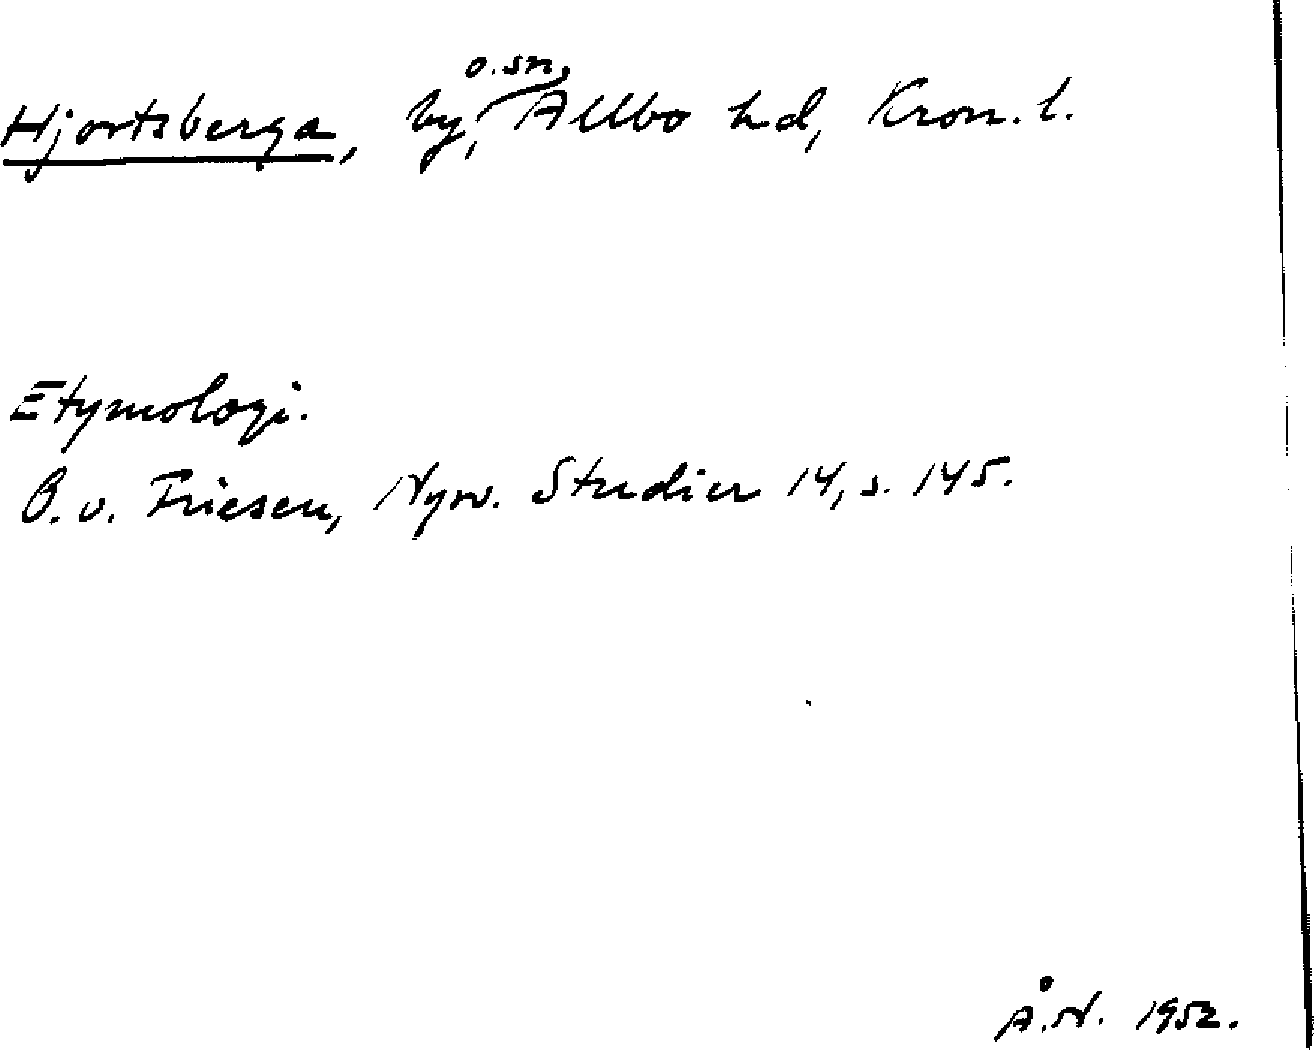 Hjortsberga, by, o. sn, Allbo hd, Kron. l.
Etymologi.
O. v. Friesen, Nysv. Studier 14, s. 145.
Å.N. 1952.